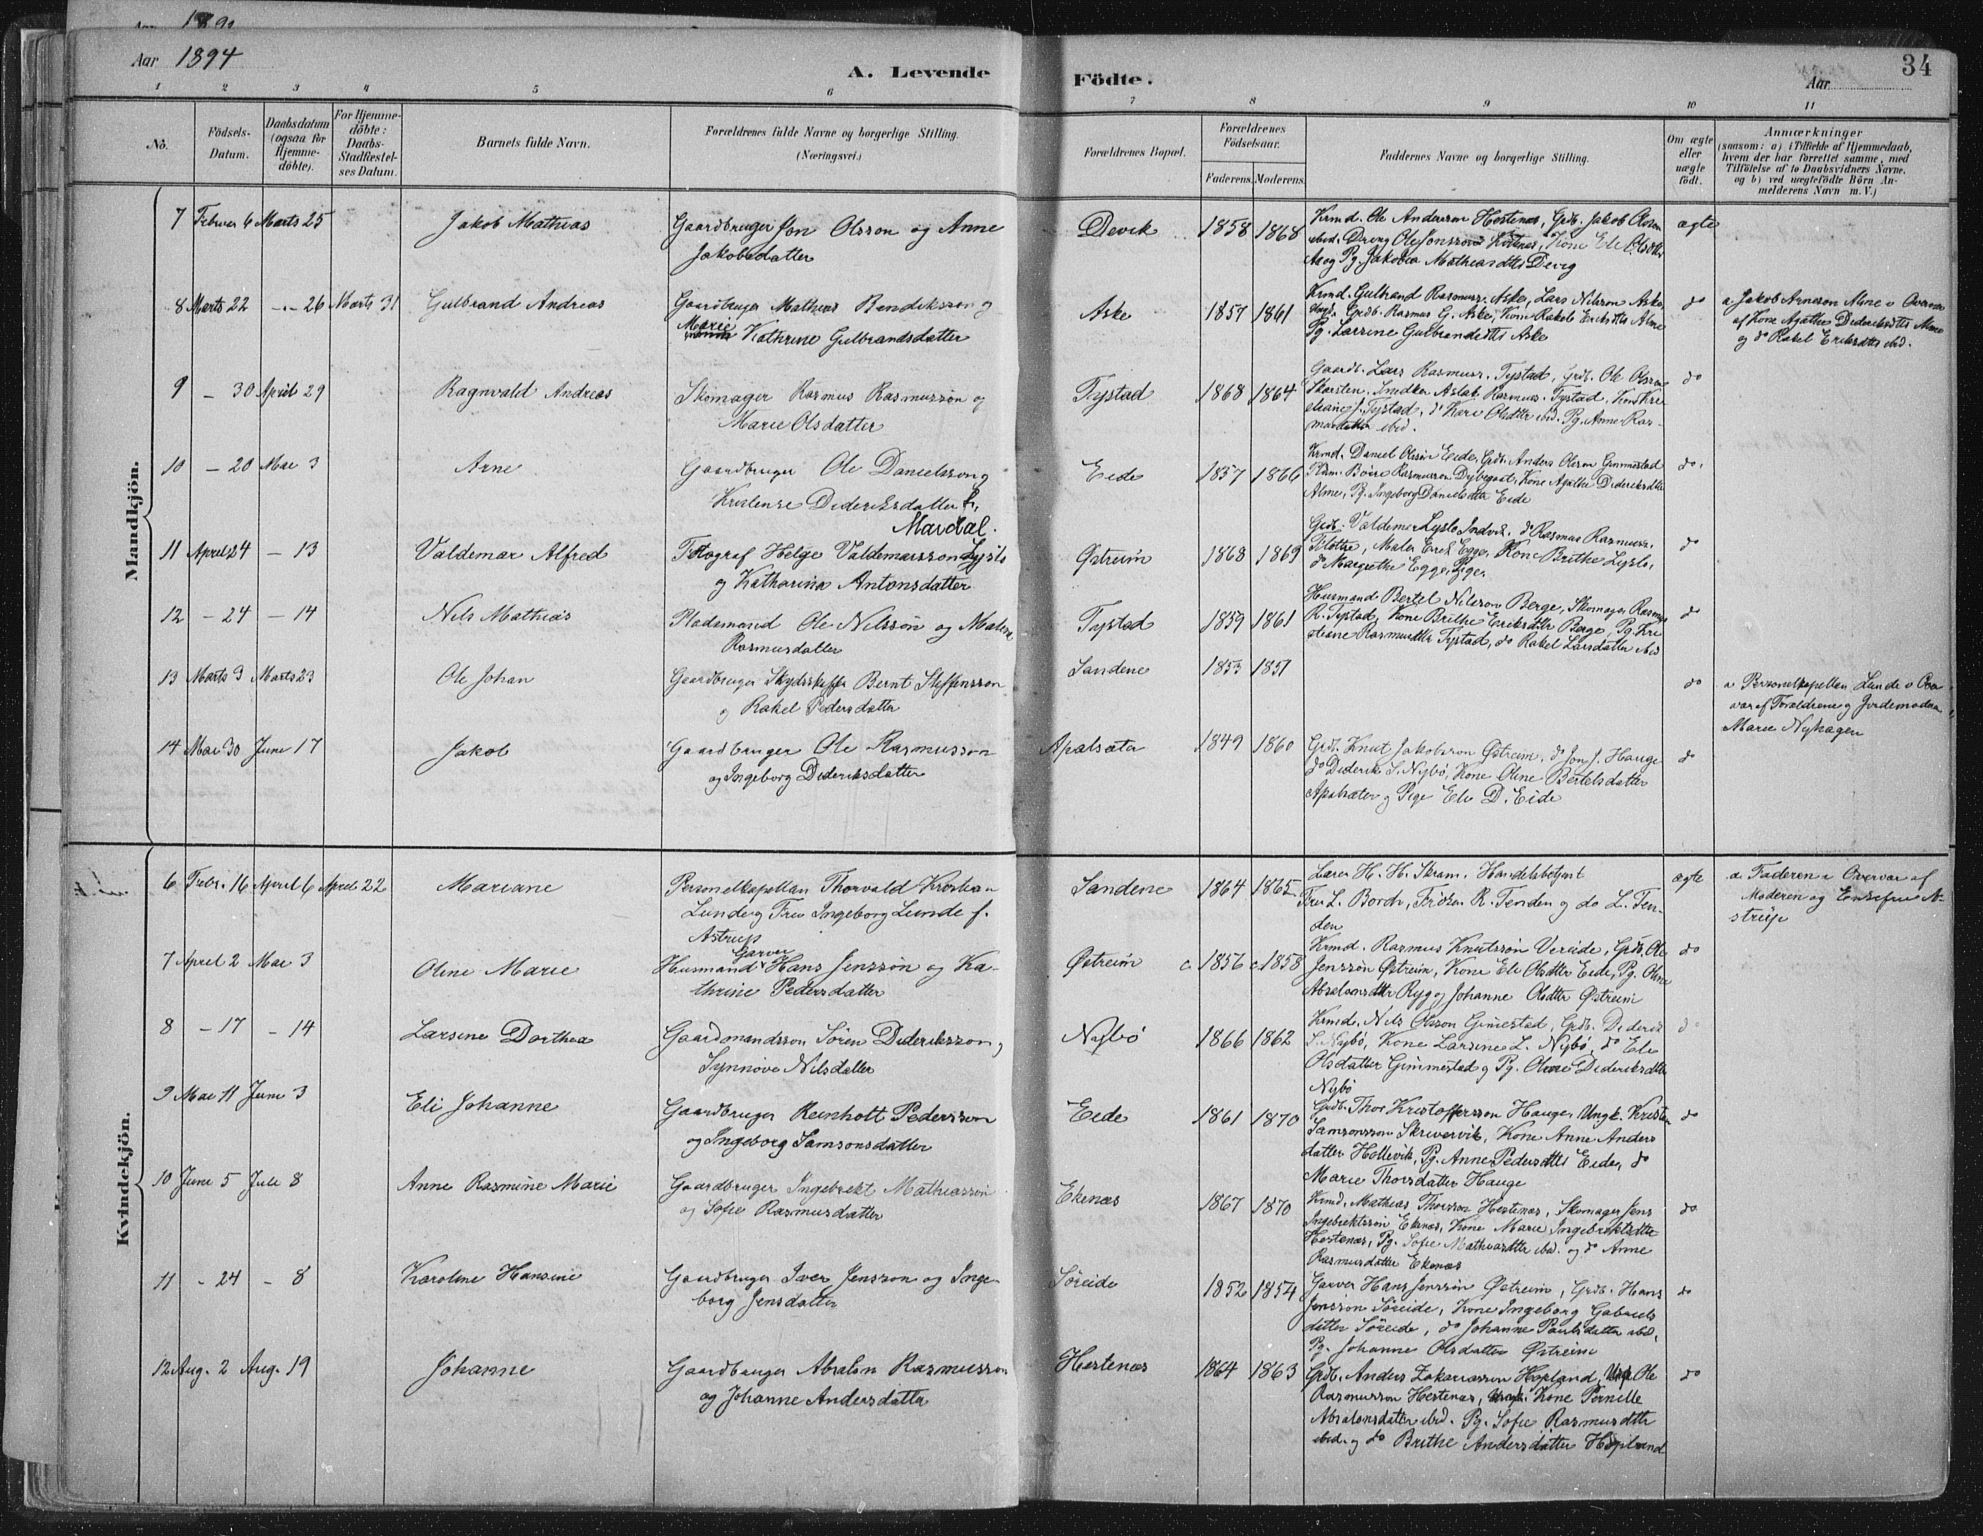 Aar 1894
A. Levende Födte.
Aar
34
1 2 3 4 5 6 7 8 9 10 11
No.
Födsels-Datum.
Daabsdatum (ogsaa for Hjemme-döbte).
For Hjemme-döbte: Daabs-Stadfæstel-ses Datum.
Barnets fulde Navn.
Forældrenes fulde Navne og borgerlige Stilling. (Næringsvei.)
Forældrenes Bopæl.
Forældrenes Födselsaar.
Faderens. Moderens.
Faddernes Navne og borgerlige Stilling.
Om ægte eller uægte födt.
Anmærkninger
(saasom: a) i Tilfælde af Hjemmedaab, hvem der har forrettet samme, med Tilföielse af to Daabsvidners Navne, og b) ved uægtefödte Börn An-melderens Navn m. V.)
Mandkjön.
7 Februar 6 Marts 25 Jakob Mathias
Gaardbruger Jon Olsson og Anne
Jakobsdatter
Devik 1858 1868
Krmd. Ole Andersson Hestenæs, Grdb. Jakob Olsson
ibid. Dreng Ole Jonsson Hestnes, Kone Eli Olsdtr
Aa og Pg. Jakobea Mathiasdtr Devig
ægte
8 Marts 22 -"- 26 Marts 31 Gulbrand Andreas
Gaardbruger Mathias Bendiksson og
Marie Kathrine Gulbrandsdatter
Aske 1857 1861
Krmd. Gulbrand Rasmuss. Aske, Lars Nilsson Aske
Grdb. Rasmus G. Aske, Kone Rakele Eriksdtr Alme
Pg. Larsine Gulbrandsdtr Aske
do
a. Jakob Arneson Alme o. Overvær
af Kone Agathe Dideriksdtr Alme
og do Rakel Eriksdtr ibd.
9 - 30 April 29 Ragnvald Andreas
Skomager Rasmus Rasmussøn og
Marie Olsdatter
Tystad 1868 1864
Gaardb. Lars Rasmuss. Tystad, Grdb. Ole Olsson
Skarsten, Snedker Aslak Rasmuss. Tystad, Kone Kri-
stiane J. Tystad, do Kari Olsdtr ibid. Pg. Anne Ras-
musdatter ibid.
do
10 - 20 Mai 3 Arne
Gaardbruger Ole Danielsson og
Kristense Dideriksdatter f.
Mardal.
Eide 1857 1866
Krmd. Daniel Olssøn Eide, Grdb. Anders Olsson Gimmestad
Pldm. Boie Rasmusson Dybegoat, Kone Agathe Dideriksdtr
Alme, Pg. Ingeborg Danielsdtr Eide
do
11 April 24 - 13 Valdemar Alfred
Fotograf Helge Valdemarsson Lyslo
og Katharina Antonsdatter
Østreim 1868 1869
Grdb. Valdemar Lyslo Indvik, do Rasmus Rasmuss.
Maler Erik Egge, Kone Brithe Lyslo,
do Margrethe Egge, Pige.
do
12 - 24 - 14 Nils Mathias
Pladsmand Ole Nilssøn og Malene
Rasmusdatter
Tystad 1859 1861
Husmand Bertel Nilsson Berge, Skomager Rasmus
R. Tystad, Kone Brithe Eriksdtr Berge, Pg. Kri-
stiane Rasmusdtr Tystad, do Rakel Larsdatter ibid
do
13 Marts 3 Marts 23 Ole Johan
Gaardbruger Skydsskaffer Bernt Steffensson
og Rakel Pedersdatter
Sandene 1853 1851
do
a Personelkapellan Lunde o Over-
vær af Forældrene og Jordemoderen
Marie Nyhagen
14 Mai 30 Juni 17 Jakob
Gaardbruger Ole Rasmusson
og Ingeborg Dideriksdatter
Apalsæter 1849 1860
Grdb. Knut Jakobsson Østreim, do Jon J. Hauge
do Diderik S. Nybø, Kone Oline Bertelsdatter
Apalsæter og Pige Eli D. Eide
do
Kvindekjön.
6 Febr. 16 April 6 April 22 Mariane
Personelkapellan Thorvald Kristian
Lunde og Fru Ingeborg Lunde f.
Astrup
Sandene 1864 1865
Lærer H. H. Skram, Handelsbetjent
Fru L. Bordv, Frøken R. Fenden og do L. Fen-
den
ægte
a. Faderen o Overvær af
Moderen og Enkefru A-
strup
7 April 2 Mai 3 Oline Marie
Garver
Husmand Hans Jenssøn og Ka-
thrine Pedersdatter
Østreim c. 1856 c. 1858
Krmd. Rasmus Knutssøn Vereide, Grdb. Ole
Jenssøn Østreim, Kone Eli Olsdtr Eide, Pg. Oline
Absalonsdtr Ryg og Johanne Olsdtr Østreim
do
8 - 17 - 14 Larsine Dorthea
Gaardmandssøn Søren Diderikssøn og
Synnøve Nilsdatter
Nybø 1866 1862
Krmd. Nils Olsson Gimestad, Grdb. Diderik
S. Nybø, Kone Larsine L. Nybø, do Eli
Olsdatter Gimmestad og Pg. Oline Dideriksdtr
Nybø
do
9 Mai 11 Juni 3 Eli Johanne
Gaardbruger Reinholt Pederssøn
og Ingeborg Samsonsdatter
Eide 1861 1870
Grdb. Thor Kristoffersson Hauge, Ungk. Kristen
Samsonsson Skrivervik, Kone Anne Anders
datter Hollevik, Pg. Anne Pedersdtr Eide, do
Marie Thorsdatter Hauge
do
10 Juni 5 Juli 8 Anne Rasmine Marie
Gaardbruger Ingebrekt Mathiassøn
og Sofie Rasmusdatter
Ekenæs 1867 1870
Krmd. Mathias Thorsson Hestenæs, Skomager Jens
Ingebrektssøn Ekenæs, Kone Marie Ingebrektsdtr
Hestenæs, Pg. Sofie Mathiasdtr ibid. og do Anne
Rasmusdatter Ekenæs
do
11 - 24 - 8 Karoline Hansine
Gaardbruger Iver Jensson og Inge-
borg Jensdatter
Søreide 1852 1854
Garver Hans Jenssøn Østreim, Grdb. Hans
Jenssøn Søreide, Kone Ingeborg Gabriels
datter Søreide, do Johanne Paulsdatter ibid,
Pg. Johanne Olsdatter Østreim
do
12 Aug. 2 Aug. 19 Johanne
Gaardbruger Absalon Rasmussøn
og Johanne Andersdatter
Hestenæs 1864 1863
Grdb. Anders Zakariasson Hopland, Ungk. Ole
Rasmusson Hestenæs, Kone Pernille
Absalonsdatter ibid. Pg. Sofie Rasmusdtr
ibid. og do Brithe Andersdatter Hopland
do